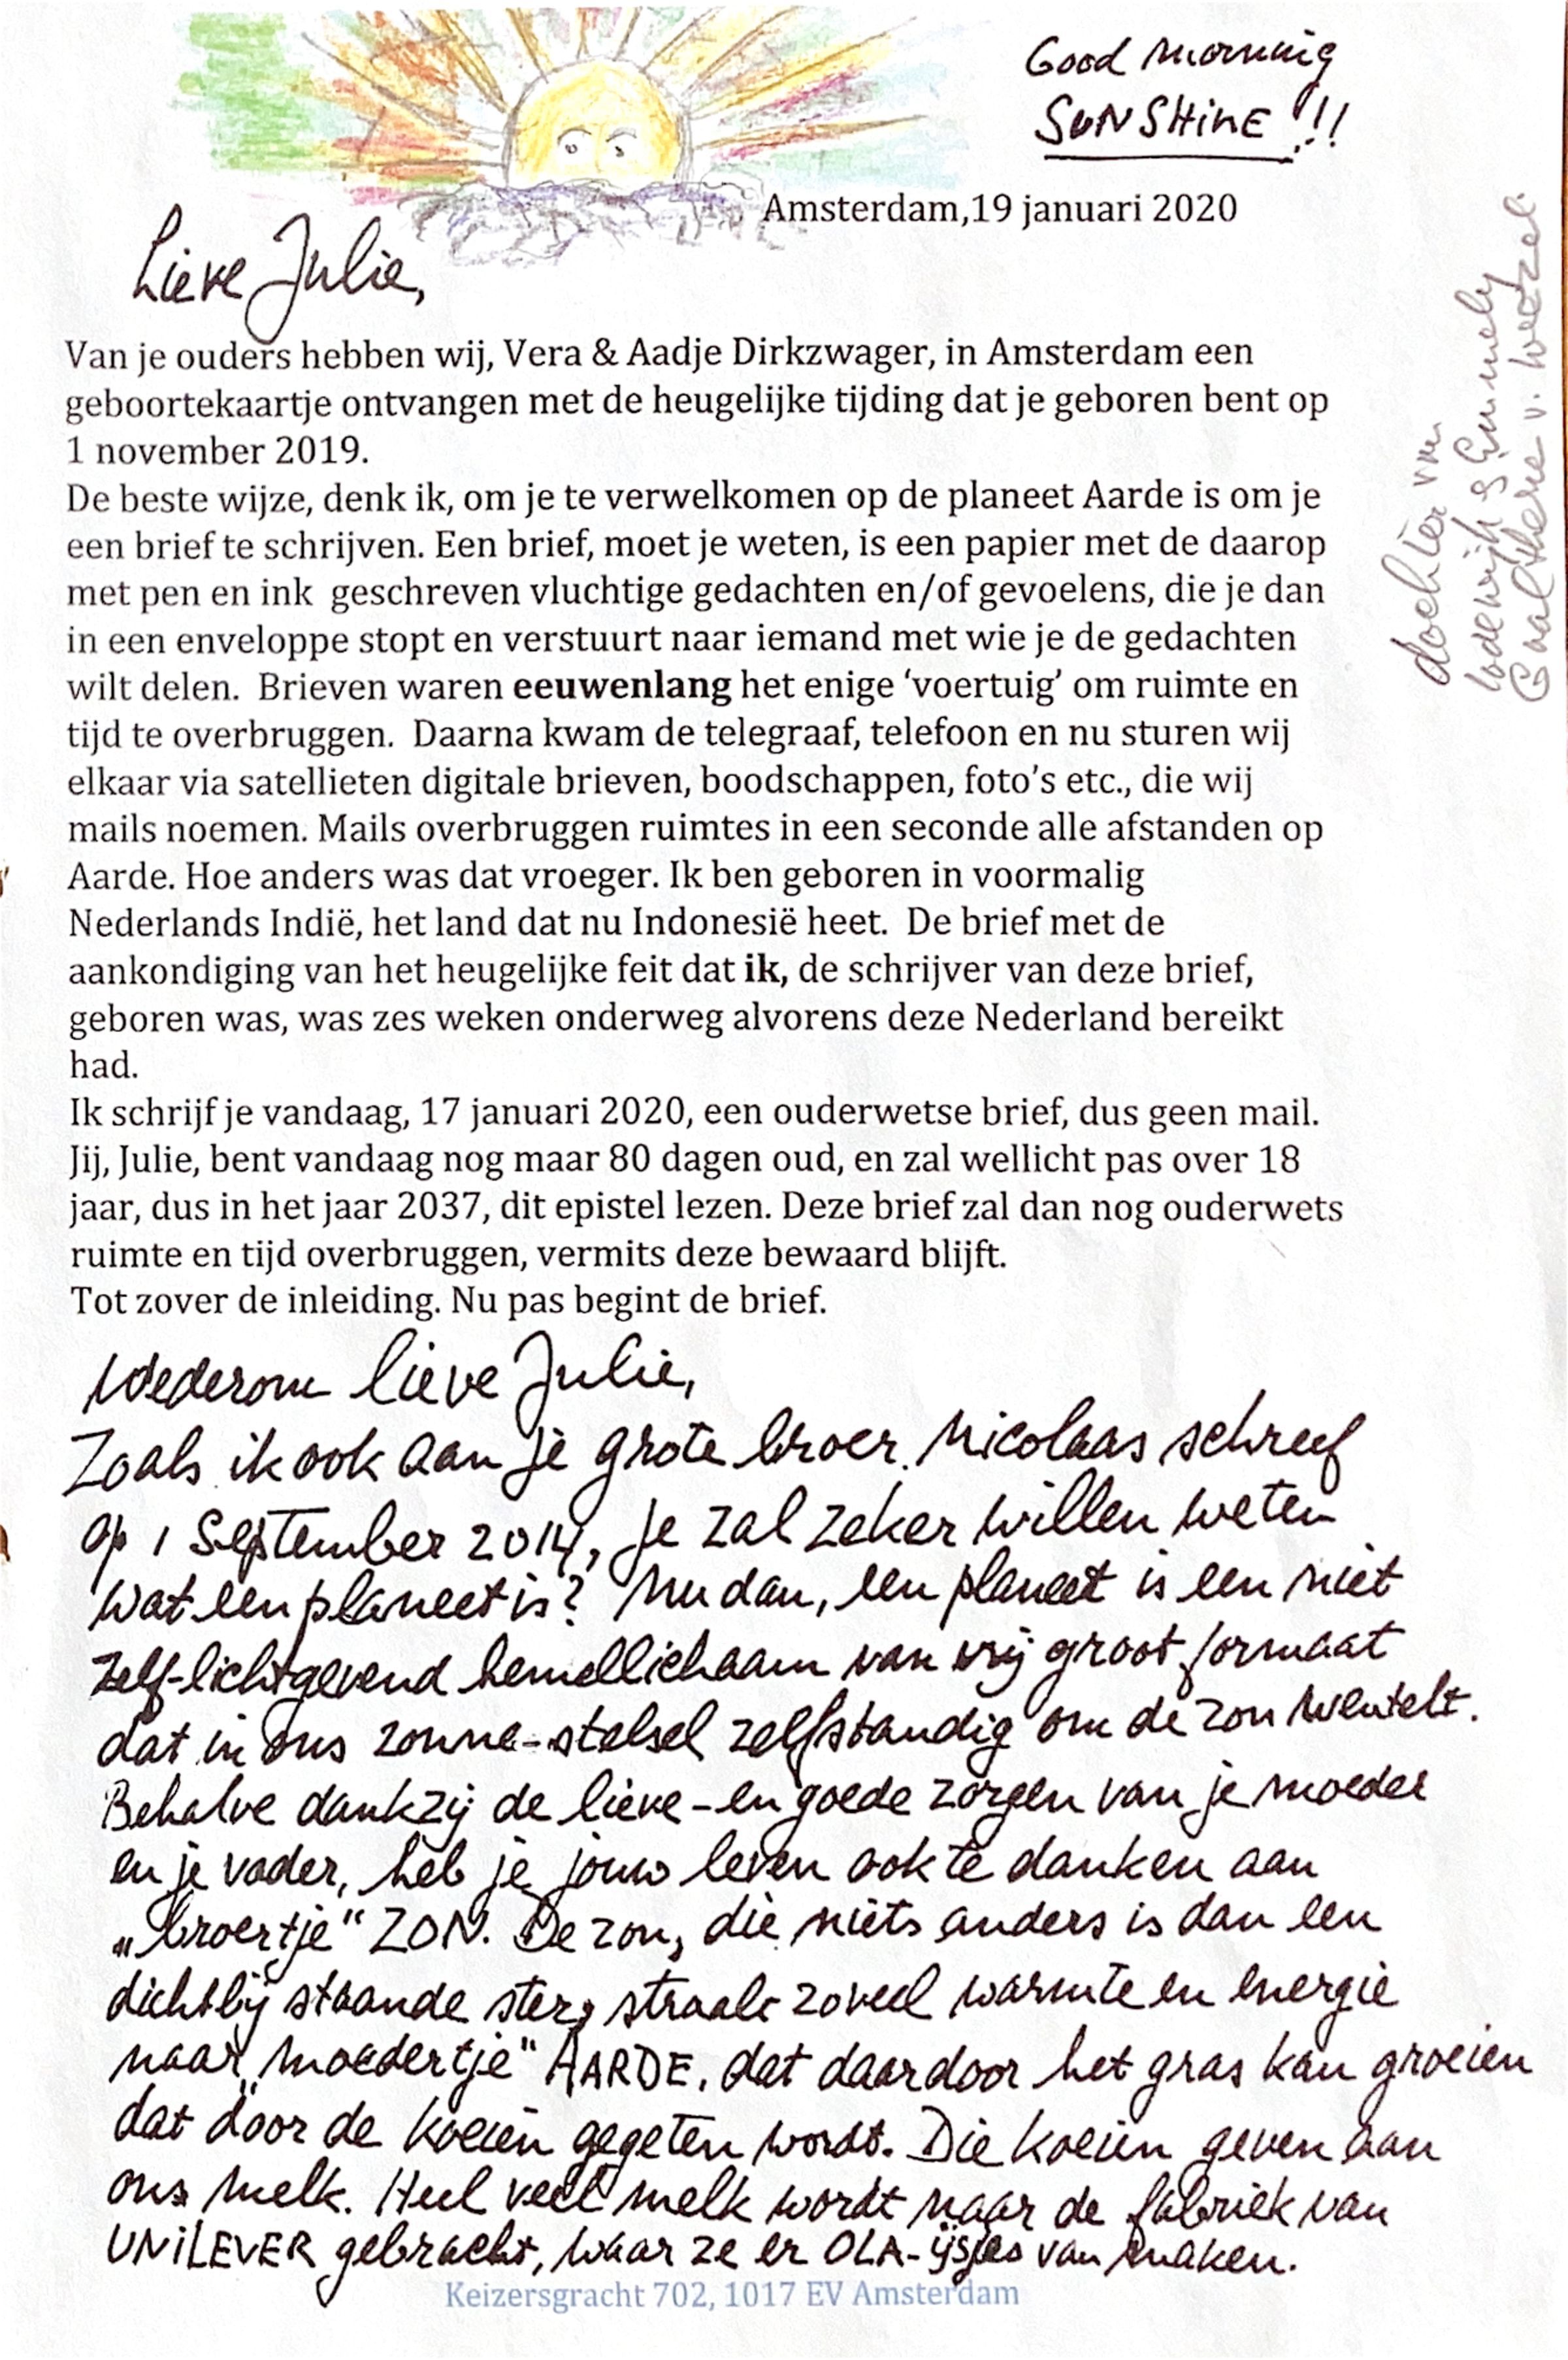 Good morning
SUNSHiNE !!!
Amsterdam,19 januari 2020
Lieve Julie,
Van je ouders hebben wij, Vera & Aadje Dirkzwager, in Amsterdam een
geboortekaartje ontvangen met de heugelijke tijding dat je geboren bent op
1 november 2019.
De beste wijze, denk ik, om je te verwelkomen op de planeet Aarde is om je
een brief te schrijven. Een brief, moet je weten, is een papier met de daarop
met pen en ink  geschreven vluchtige gedachten en/of gevoelens, die je dan
in een enveloppe stopt en verstuurt naar iemand met wie je de gedachten
wilt delen.  Brieven waren eeuwenlang het enige ‘voertuig’ om ruimte en
tijd te overbruggen.  Daarna kwam de telegraaf, telefoon en nu sturen wij
elkaar via satellieten digitale brieven, boodschappen, foto’s etc., die wij
mails noemen. Mails overbruggen ruimtes in een seconde alle afstanden op
Aarde. Hoe anders was dat vroeger. Ik ben geboren in voormalig
Nederlands Indië, het land dat nu Indonesië heet.  De brief met de
aankondiging van het heugelijke feit dat ik, de schrijver van deze brief,
geboren was, was zes weken onderweg alvorens deze Nederland bereikt
had.
Ik schrijf je vandaag, 17 januari 2020, een ouderwetse brief, dus geen mail.
Jij, Julie, bent vandaag nog maar 80 dagen oud, en zal wellicht pas over 18
jaar, dus in het jaar 2037, dit epistel lezen. Deze brief zal dan nog ouderwets
ruimte en tijd overbruggen, vermits deze bewaard blijft.
Tot zover de inleiding. Nu pas begint de brief.
Wederom lieve Julie,
Zoals ik ook aan je grote broer Nicolaas schreef
op 1 September 2014, je zal zeker willen weten
wat een planeet is? Nu dan, een planeet is een niet
zelf-lichtgevend hemellichaam van vrij groot formaat
dat in ons zonne-stelsel zelfstandig om de zon wentelt.
Behalve dankzij de lieve-en goede zorgen van je moeder
en je vader, heb je jouw leven ook te danken aan
„broertje" ZON. De zon, die niets anders is dan een
dichtbij staande ster, straalt zoveel warmte en energie
naar „moedertje" AARDE, dat daardoor het gras kan groeien
dat door de koeien gegeten wordt. Die koeien geven aan
ons melk. Heel veel melk wordt naar de fabriek van
UNiLEVER gebracht, waar ze er OLA-ijsjes van maken.
Keizersgracht 702, 1017 EV Amsterdam
dochter van
Lodewijk & Emmely
Gualthérie v. Weezel